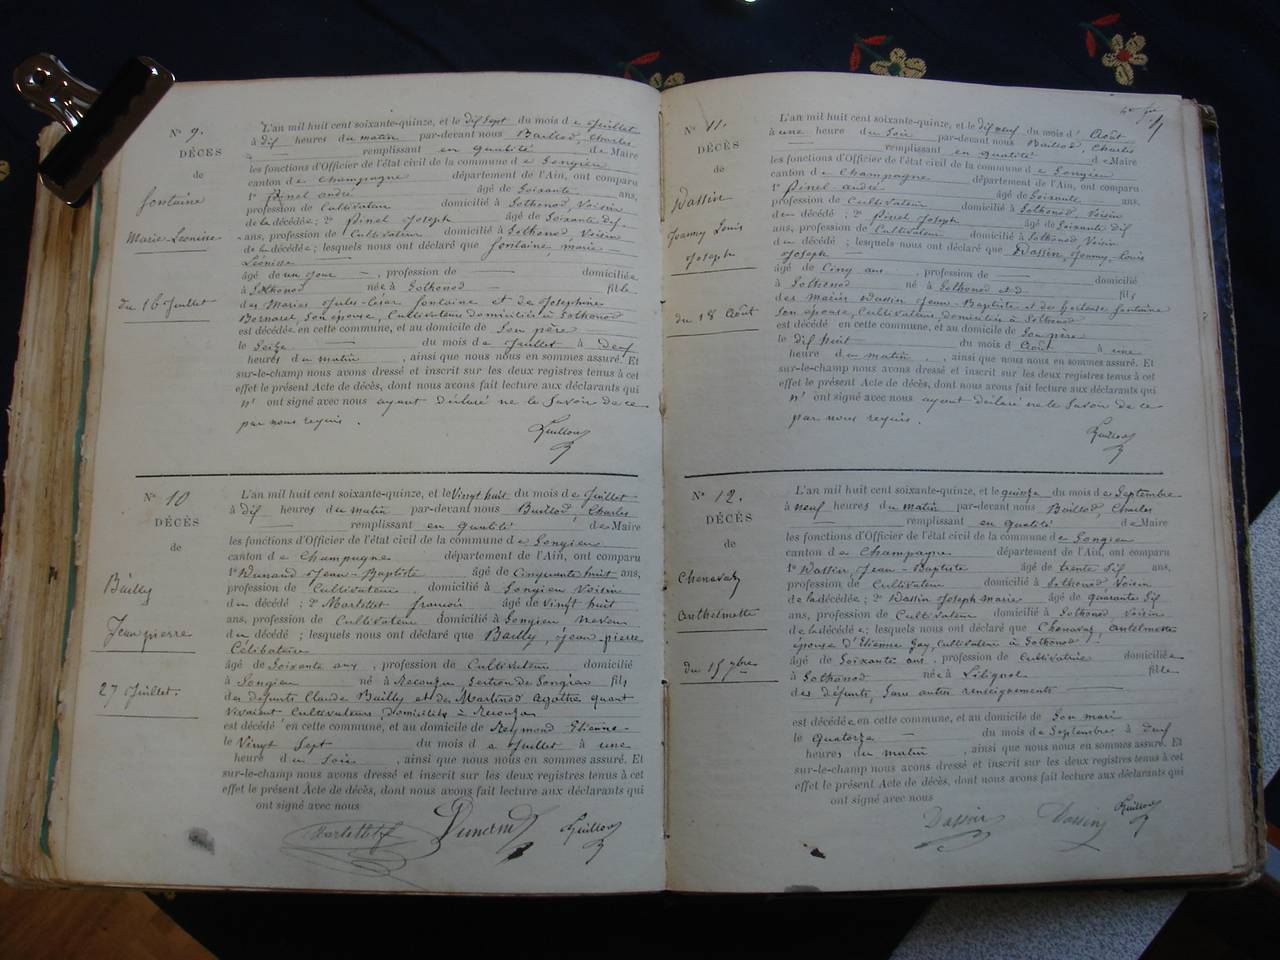 Nº 9.
DÉCÈS
de
fontaine
Marie Léonise
du 16 Juillet
L'an mil huit cent soixante-quinze, et le dix sept du mois de Juillet
à dix heures du matin par-devant nous Baillod, Charles
remplissant en qualité de Maire
les fonctions d'Officier de l'état civil de la commune de Songieu
canton de Champagne département de l'Ain, ont comparu
1º Pinel andré âgé de Soixante ans,
profession de Cultivateur domicilié à Sothonod, Voisin
de la décédée ; 2º Pinel Joseph âgé de Soixante dix
ans, profession de Cultivateur domicilié à Sothonod Voisin
de la décédée ; lesquels nous ont déclaré que fontaine, marie
Léonise
âgé de un Jour , profession de domiciliée
à Sothonod née à Sothonod fille
des Mariés Jules-César fontaine et de Josephine
Bernard, Son épouse, Cultivateurs domiciliés à Sothonod
est décédée en cette commune, et au domicile de Son père
le Seize du mois de Juillet à Deux
heures du matin , ainsi que nous nous en sommes assuré. Et
sur-le-champ nous avons dressé et inscrit sur les deux registres tenus à cet
effet le présent Acte de décès, dont nous avons fait lecture aux déclarants qui
n' ont signé avec nous ayant déclaré ne le Savoir de ce
par nous requis .
Nº 10
DÉCÈS
de
Bailly
Jean pierre
27 Juillet.
L'an mil huit cent soixante-quinze, et le Vingt huit du mois de Juillet
à dix heures du matin par-devant nous Baillod, Charles
remplissant en qualité de Maire
les fonctions d'Officier de l'état civil de la commune de Songieu
canton de Champagne département de l'Ain, ont comparu
1º Dunand Jean Baptiste âgé de Cinquante huit ans,
profession de Cultivateur domicilié à Songieu Voisin
du décédé ; 2º Martellet françois âgé de Vingt huit
ans, profession de Cultivateur domicilié à Songieu neveu
du décédé ; lesquels nous ont déclaré que Bailly, Jean-pierre
Célibataire
âgé de Soixante ans , profession de Cultivateur domicilié
à Songieu né à Section de Songieu fils
des défunts Claude Bailly et de Martinod Agathe quant
Vivaient Cultivateurs, Domiciliés à
est décédé en cette commune, et au domicile de Reymond Etienne
le Vingt Sept du mois de Juillet à une
heure du Soir , ainsi que nous nous en sommes assuré. Et
sur-le-champ nous avons dressé et inscrit sur les deux registres tenus à cet
effet le présent Acte de décès, dont nous avons fait lecture aux déclarants qui
ont signé avec nous
Martellet Dunand
Nº 11.
DÉCÈS
de
Dassin
Joanny Louis
Joseph
du 18 Août
L'an mil huit cent soixante-quinze, et le dix neuf du mois d' Août
à une heure du Soir par-devant nous Baillod, Charles
remplissant en qualité de Maire
les fonctions d'Officier de l'état civil de la commune de Songieu
canton de Champagne département de l'Ain, ont comparu
1º Pinel andré âgé de Soixante ans,
profession de Cultivateur domicilié à Sothonod Voisin
du décédé ; 2º Pinel Joseph âgé de Soixante dix
ans, profession de Cultivateur domicilié à Sothonod Voisin
du décédé ; lesquels nous ont déclaré que Dassin, Joanny-Louis
Joseph
âgé de Cinq ans , profession de domicilié
à Sothonod né à Sothonod fils
des mariés Dassin Jean-Baptiste et de fontaine
Son épouse, Cultivateurs, domiciliés à Sothonod
est décédé en cette commune, et au domicile de Son père
le dix huit du mois d' Août à une
heure du matin , ainsi que nous nous en sommes assuré. Et
sur-le-champ nous avons dressé et inscrit sur les deux registres tenus à cet
effet le présent Acte de décès, dont nous avons fait lecture aux déclarants qui
n' ont signé avec nous ayant déclaré ne le Savoir de ce
par nous requis.
Nº 12.
DÉCÈS
de
Chenavaz
Anthelmette
du 15 7bre
L'an mil huit cent soixante-quinze, et le quinze du mois de Septembre
à neuf heures du matin par-devant nous Baillod, Charles
remplissant en qualité de Maire
les fonctions d'Officier de l'état civil de la commune de Songieu
canton de Champagne département de l'Ain, ont comparu
1º Dassin Jean Baptiste âgé de trente Six ans,
profession de Cultivateur domicilié à Sothonod Voisin
de la décédée ; 2º Dassin Joseph Marie âgé de quarante Six
ans, profession de Cultivateur domicilié à Sothonod Voisin
de la décédée ; lesquels nous ont déclaré que Chenavaz, antelmette
épouse d'Etienne Gay, Cultivateur à Sothonod
âgée de Soixante ans , profession de Cultivatrice domiciliée
à Sothonod née à Lilignod fille
des défunts, Sans autres renseignements
est décédée en cette commune, et au domicile de Son mari
le Quatorze du mois de Septembre à Deux
heures du matin , ainsi que nous nous en sommes assuré. Et
sur-le-champ nous avons dressé et inscrit sur les deux registres tenus à cet
effet le présent Acte de décès, dont nous avons fait lecture aux déclarants qui
ont signé avec nous
Dassin Dassin